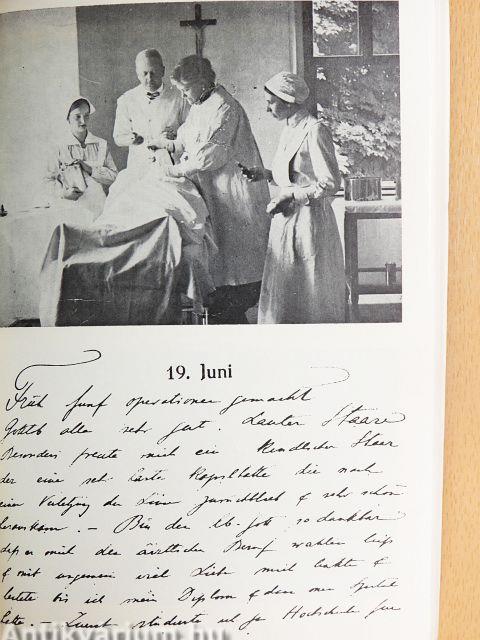 19. Juni
Früh fünf operationen gemacht
Gottlob alle sehr gut. Lauter Staare
Besonders freute mich ein Kindlicher Staar
der eine sehr harte Kapsel hatte die nach
einer Verletzung der Linse zurückblieb & sehr schön
herauskam. – Bin dem lb. Gott so dankbar
daß er mich den ärztlichen Beruf wählen ließ
& mit ungemein viel Liebe mich lenkte &
leitete bis ich mein Diplom &
hatte. – Zuerst studierte ich ja Hochschule für
Antikvarium.hu